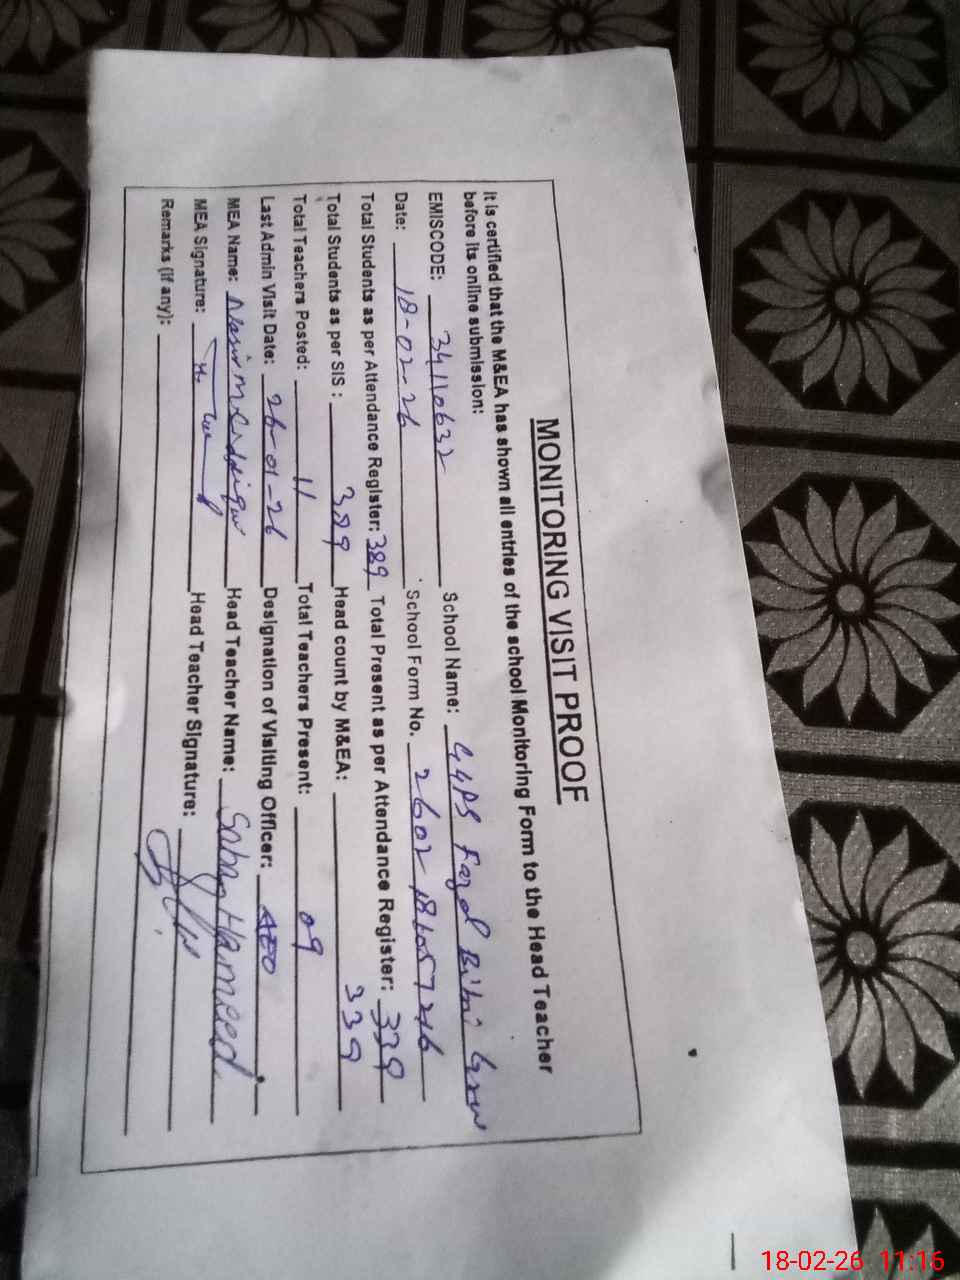 MONITORING VISIT PROOF
It is certified that the M&EA has shown all entries of the school Monitoring Form to the Head Teacher
before its online submission:
EMISCODE: 34110632 School Name: GGPS Fazal Bibi
Date: 18-02-26 School Form No. 2602
Total Students as per Attendance Register: 389 Total Present as per Attendance Register: 339
Total Students as per SIS : 389 Head count by M&EA: 339
Total Teachers Posted: 11 Total Teachers Present: 09
Last Admin Visit Date: 26-01-26 Designation of Visiting Officer: AEO
MEA Name: Nasir Head Teacher Name: Saba Hameed
MEA Signature: Head Teacher Signature:
Remarks (if any):
18-02-26 11:16